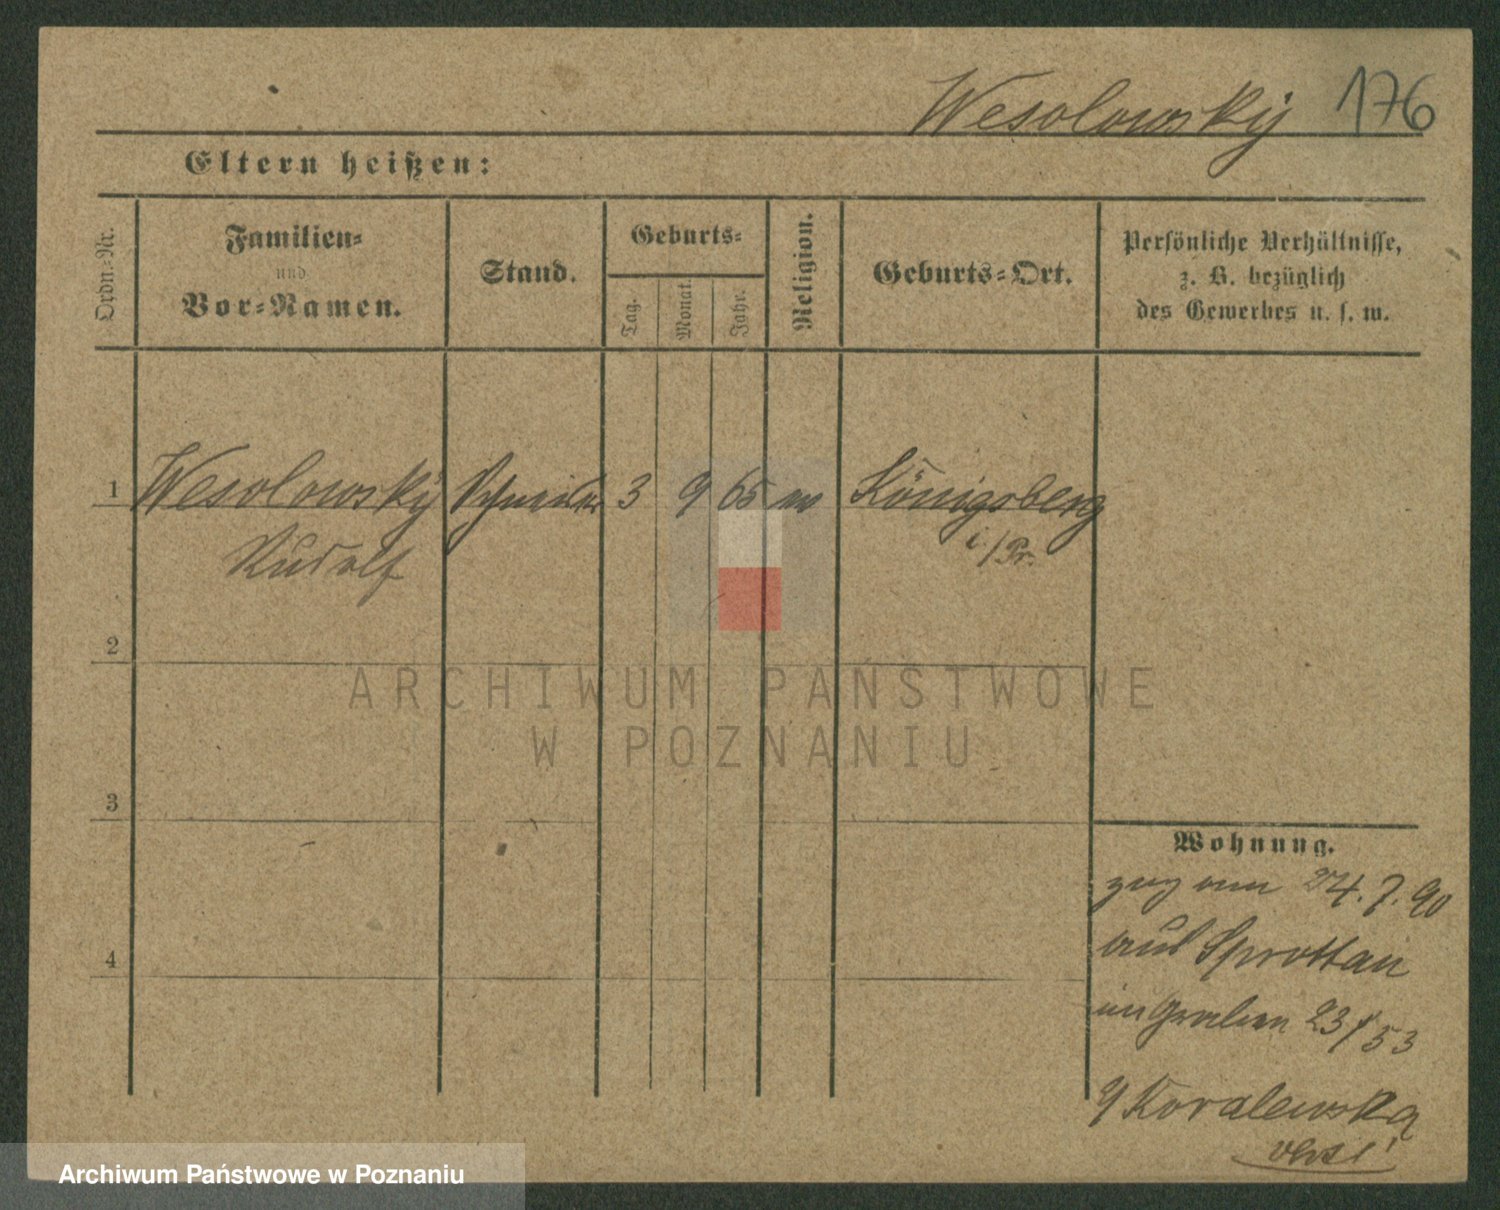 Wesolowsky 176
Eltern heißen:
Ordn.-Nr.
Familien-
und
Vor-Namen.
Stand.
Geburts-
Tag.
Monat.
Jahr.
Religion.
Geburts-Ort.
Persönliche Verhältnisse,
z. B. bezüglich
des Gewerbes u. s. w.
1 Wesolowsky Schneider 3 9 65 Königsberg
Rudolf i/Pr.
2
3
4
Wohnung.
zug 24.7.90
aus Sprottau
im Graben 23/53
Koralewska
ARCHIWUM PAŃSTWOWE
W POZNANIU
Archiwum Państwowe w Poznaniu